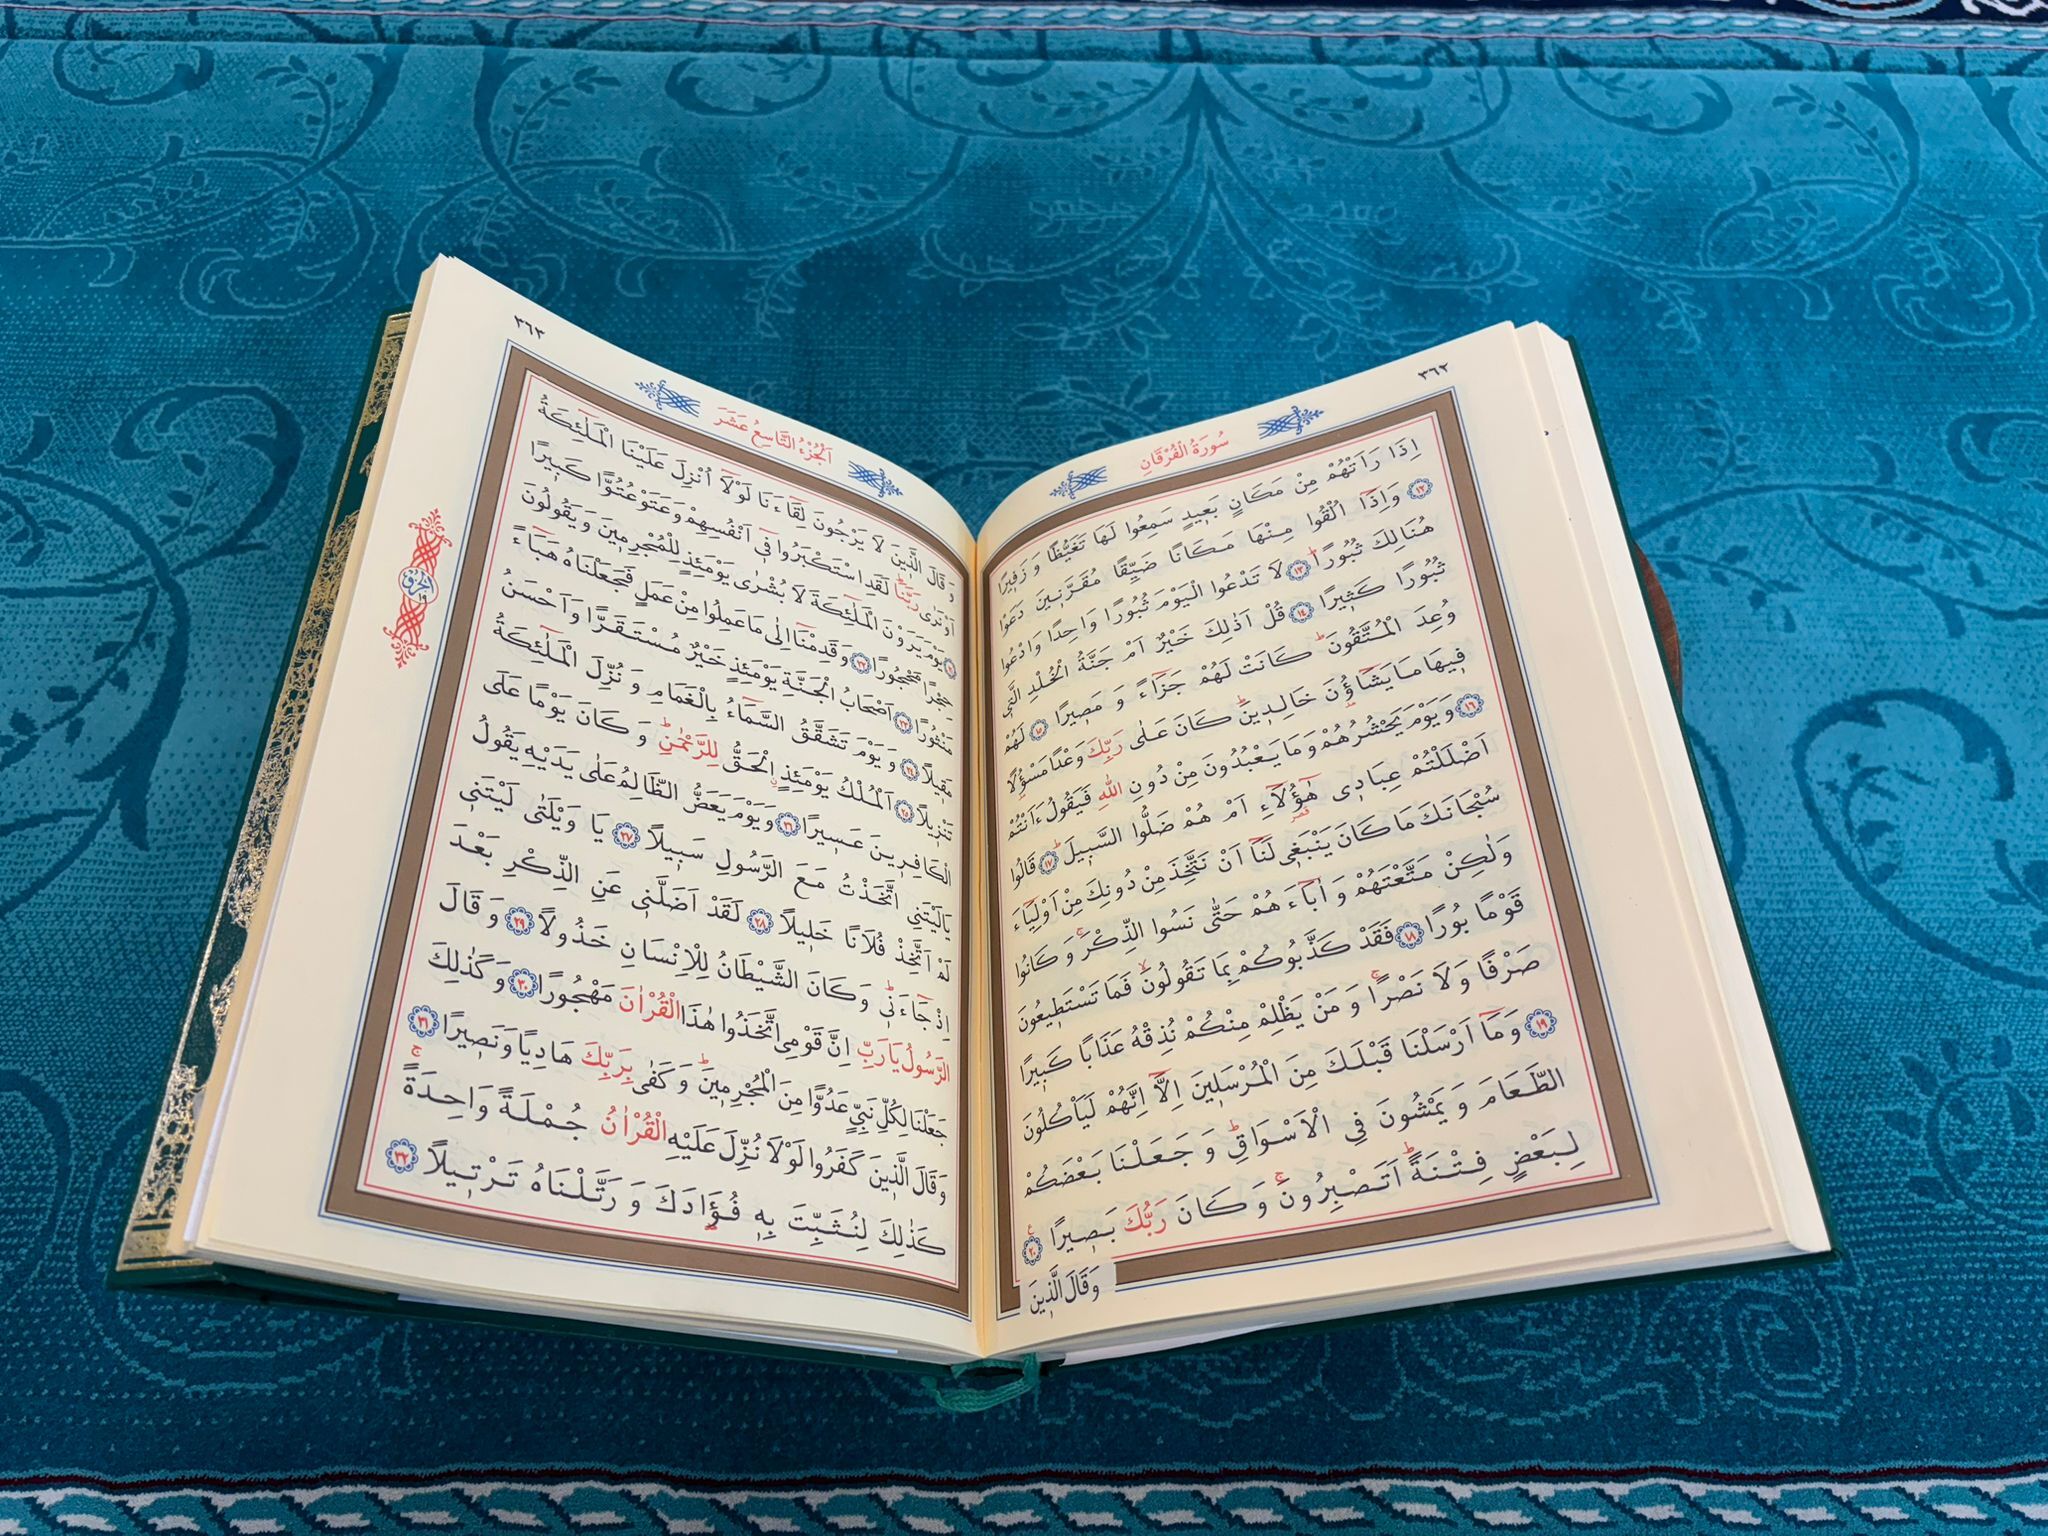 ٣٦٢
سُورَةُ الْفُرْقَانِ
اِذَا رَاَتْهُمْ مِنْ مَكَانٍ بَعٖيدٍ سَمِعُوا لَهَا تَغَيُّظًا وَ زَفٖيرًا
﴿١٢﴾ وَاِذَٓا اُلْقُوا مِنْهَا مَكَانًا ضَيِّقًا مُقَرَّنٖينَ دَعَوْا
هُنَالِكَ ثُبُورًا ﴿١٣﴾ لَا تَدْعُوا الْيَوْمَ ثُبُورًا وَاحِدًا وَادْعُوا
ثُبُورًا كَثٖيرًا ﴿١٤﴾ قُلْ اَذٰلِكَ خَيْرٌ اَمْ جَنَّةُ الْخُلْدِ الَّتٖى
وُعِدَ الْمُتَّقُونَ كَانَتْ لَهُمْ جَزَٓاءً وَ مَصٖيرًا ﴿١٥﴾ لَهُمْ
فٖيهَا مَا يَشَٓاؤُ۫نَ خَالِدٖينَ كَانَ عَلٰى رَبِّكَ وَعْدًا مَسْؤُ۫لًا
﴿١٦﴾ وَ يَوْمَ يَحْشُرُهُمْ وَ مَا يَعْبُدُونَ مِنْ دُونِ اللّٰهِ فَيَقُولُ ءَاَنْتُمْ
اَضْلَلْتُمْ عِبَادٖى هٰٓؤُ۬لَٓاءِ اَمْ هُمْ ضَلُّوا السَّبٖيلَ ﴿١٧﴾ قَالُوا
سُبْحَانَكَ مَا كَانَ يَنْبَغٖى لَنَٓا اَنْ نَتَّخِذَ مِنْ دُونِكَ مِنْ اَوْلِيَٓاءَ
وَلٰكِنْ مَتَّعْتَهُمْ وَ اٰبَٓاءَ هُمْ حَتّٰى نَسُوا الذِّكْرَ وَ كَانُوا
قَوْمًا بُورًا ﴿١٨﴾ فَقَدْ كَذَّبُوكُمْ بِمَا تَقُولُونَ فَمَا تَسْتَطٖيعُونَ
صَرْفًا وَ لَا نَصْرًا وَ مَنْ يَظْلِمْ مِنْكُمْ نُذِقْهُ عَذَابًا كَبٖيرًا
﴿١٩﴾ وَ مَٓا اَرْسَلْنَا قَبْلَكَ مِنَ الْمُرْسَلٖينَ اِلَّٓا اِنَّهُمْ لَيَأْكُلُونَ
الطَّعَامَ وَ يَمْشُونَ فِي الْاَسْوَاقِ وَ جَعَلْنَا بَعْضَكُمْ
لِبَعْضٍ فِتْنَةً اَتَصْبِرُونَ وَ كَانَ رَبُّكَ بَصٖيرًا ﴿٢٠﴾
وَقَالَ الَّذٖينَ
٣٦٣
اَلْجُزْءُ التَّاسِعُ عَشَرَ
وَ قَالَ الَّذٖينَ لَا يَرْجُونَ لِقَٓاءَنَا لَوْلَٓا اُنْزِلَ عَلَيْنَا الْمَلٰٓئِكَةُ
اَوْ نَرٰى رَبَّنَا لَقَدِ اسْتَكْبَرُوا فٖٓى اَنْفُسِهِمْ وَ عَتَوْ عُتُوًّا كَبٖيرًا
﴿٢١﴾ يَوْمَ يَرَوْنَ الْمَلٰٓئِكَةَ لَا بُشْرٰى يَوْمَئِذٍ لِلْمُجْرِمٖينَ وَ يَقُولُونَ
حِجْرًا مَحْجُورًا ﴿٢٢﴾ وَ قَدِمْنَٓا اِلٰى مَا عَمِلُوا مِنْ عَمَلٍ فَجَعَلْنَاهُ هَبَٓاءً
مَنْثُورًا ﴿٢٣﴾ اَصْحَابُ الْجَنَّةِ يَوْمَئِذٍ خَيْرٌ مُسْتَقَرًّا وَ اَحْسَنُ
مَقٖيلًا ﴿٢٤﴾ وَ يَوْمَ تَشَقَّقُ السَّمَٓاءُ بِالْغَمَامِ وَ نُزِّلَ الْمَلٰٓئِكَةُ
تَنْزٖيلًا ﴿٢٥﴾ اَلْمُلْكُ يَوْمَئِذٍ الْحَقُّ لِلرَّحْمٰنِ وَ كَانَ يَوْمًا عَلَى
الْكَافِرٖينَ عَسٖيرًا ﴿٢٦﴾ وَ يَوْمَ يَعَضُّ الظَّالِمُ عَلٰى يَدَيْهِ يَقُولُ
يَالَيْتَنِى اتَّخَذْتُ مَعَ الرَّسُولِ سَبٖيلًا ﴿٢٧﴾ يَا وَيْلَتٰى لَيْتَنٖى
لَمْ اَتَّخِذْ فُلَانًا خَلٖيلًا ﴿٢٨﴾ لَقَدْ اَضَلَّنٖى عَنِ الذِّكْرِ بَعْدَ
اِذْ جَٓاءَنٖى وَ كَانَ الشَّيْطَانُ لِلْاِنْسَانِ خَذُولًا ﴿٢٩﴾ وَ قَالَ
الرَّسُولُ يَا رَبِّ اِنَّ قَوْمِى اتَّخَذُوا هٰذَا الْقُرْاٰنَ مَهْجُورًا ﴿٣٠﴾ وَ كَذٰلِكَ
جَعَلْنَا لِكُلِّ نَبِىٍّ عَدُوًّا مِنَ الْمُجْرِمٖينَ وَ كَفٰى بِرَبِّكَ هَادِيًا وَ نَصٖيرًا ﴿٣١﴾
وَقَالَ الَّذٖينَ كَفَرُوا لَوْلَا نُزِّلَ عَلَيْهِ الْقُرْاٰنُ جُمْلَةً وَاحِدَةً
كَذٰلِكَ لِنُثَبِّتَ بِهٖ فُؤٰادَكَ وَ رَتَّلْنَاهُ تَرْتٖيلًا ﴿٣٢﴾
الجزؤ
١٩